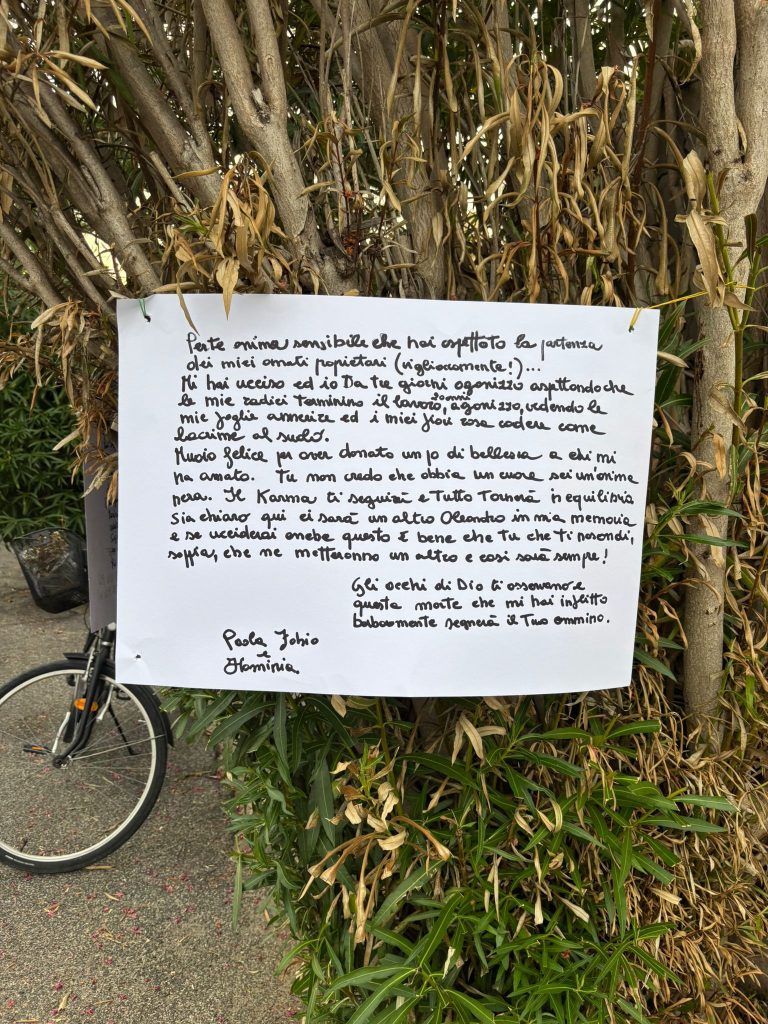 Per te anima sensibile che hai aspettato la partenza
dei miei amati popietari (vigliaccamente!)...
Mi hai ucciso ed io Da tre giorni agonizzo aspettando che
le mie radici Terminino il lavoro, agonizzo, vedendo le
mie foglie annerire ed i miei fiori rosa cadere come
lacrime al suolo.
Muoio felice per aver donato un po di bellezza a chi mi
ha amato. Tu non credo che abbia un cuore sei un'anima
nera. Il Karma ti seguirà e Tutto Tornerà in equilibrio
Sia chiaro qui ci sarà un altro Oleandro in mia memoria
e se ucciderai anche questo è bene che tu che Ti nascondi,
sappia, che ne metteranno un altro e così sarà sempre!
Gli occhi di Dio ti osservano e
questa morte che mi hai inflitto
barbaramente segnerà il Tuo cammino.
Paola Fabio
e
Flaminia